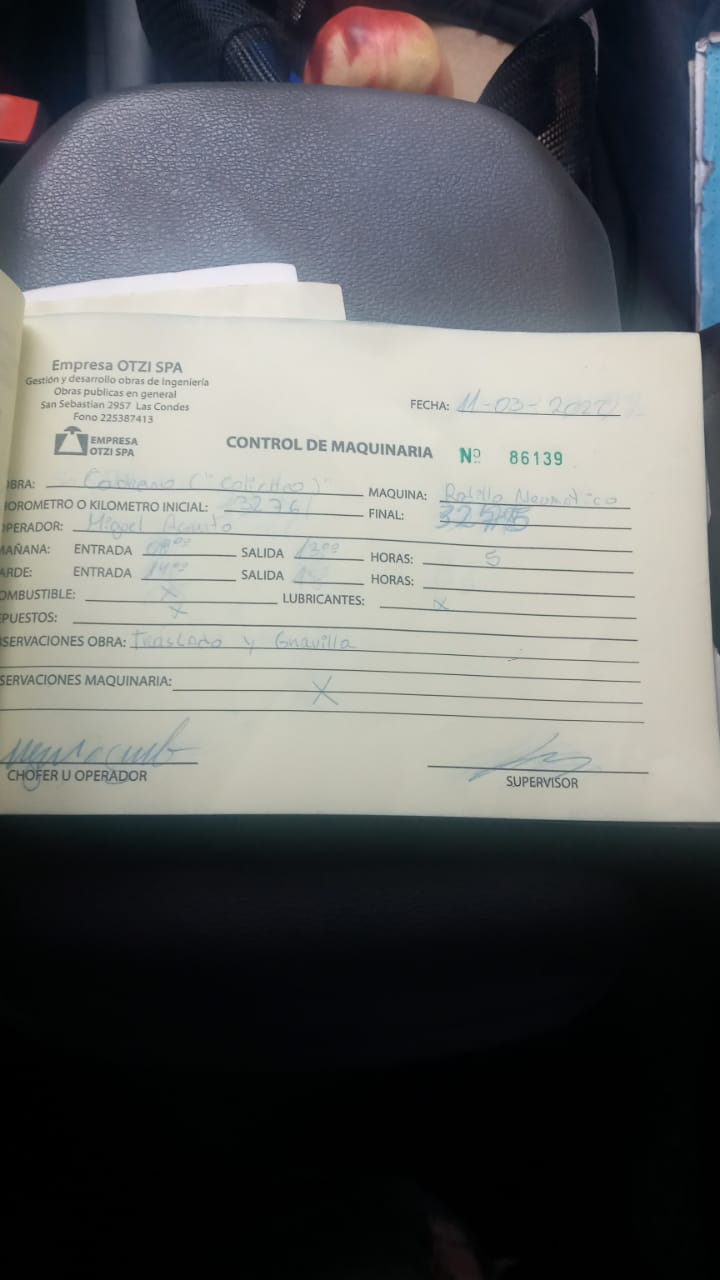 Empresa OTZI SPA
Gestión y desarrollo obras de Ingeniería
Obras publicas en general
San Sebastian 2957 Las Condes
Fono 225387413
FECHA: 11-03-
EMPRESA
OTZI SPA
CONTROL DE MAQUINARIA Nº 86139
OBRA: MAQUINA: Rodillo Neomatico
HOROMETRO O KILOMETRO INICIAL: 3276 FINAL:
OPERADOR: Miguel
MAÑANA: ENTRADA 08:00 SALIDA 13:00 HORAS: 5
TARDE: ENTRADA 14:00 SALIDA HORAS:
COMBUSTIBLE: X LUBRICANTES: X
REPUESTOS: X
OBSERVACIONES OBRA: Traslado y Gravilla
OBSERVACIONES MAQUINARIA: X
CHOFER U OPERADOR SUPERVISOR